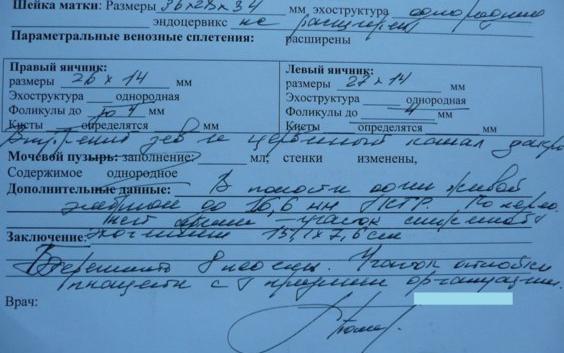 Шейка матки: Размеры 36х28х34 мм, эхоструктура однородная
эндоцервикс не расширен
Параметральные венозные сплетения: расширены
Правый яичник:
размеры 26 х 14 мм
Эхоструктура однородная
Фоликулы до 4 мм
Кисты определятся мм
Левый яичник:
размеры 28 х 14 мм
Эхоструктура однородная
Фоликулы до 4
Кисты определятся мм
Внутренний зев и цервикный канал закры
Мочевой пузырь: заполнение: мл; стенки изменены,
Содержимое однородное
Дополнительные данные: В полости один живой
эмбрион до 16,6 мм КТР. По перед
участок
Заключение:
Беременность 8 недель. Участок отслойки
плаценты с организации.
Врач: